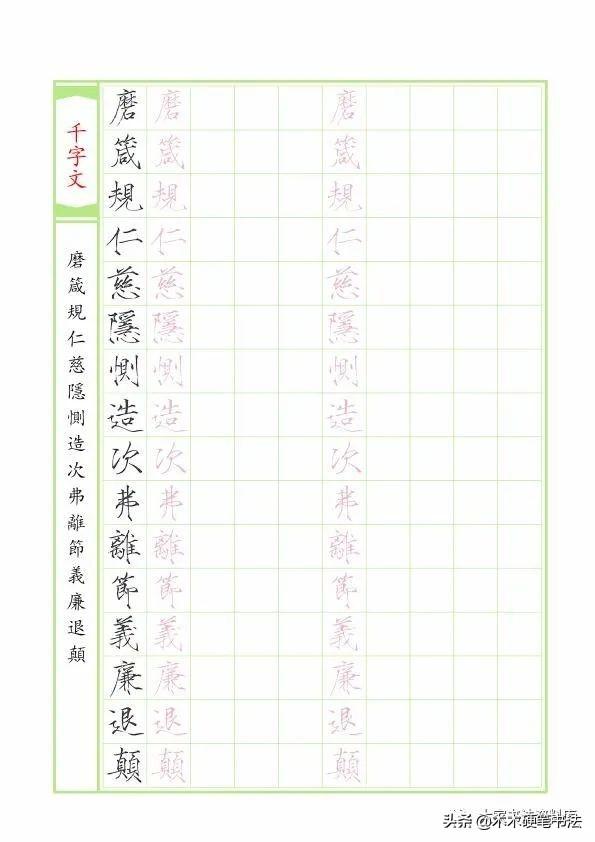 千字文
磨箴規仁慈隱惻造次弗離節義廉退顛
磨 磨 磨
箴 箴 箴
規 規 規
仁 仁 仁
慈 慈 慈
隱 隱 隱
惻 惻 惻
造 造 造
次 次 次
弗 弗 弗
離 離 離
節 節 節
義 義 義
廉 廉 廉
退 退 退
顛 顛 顛
头条 @木木硬笔书法